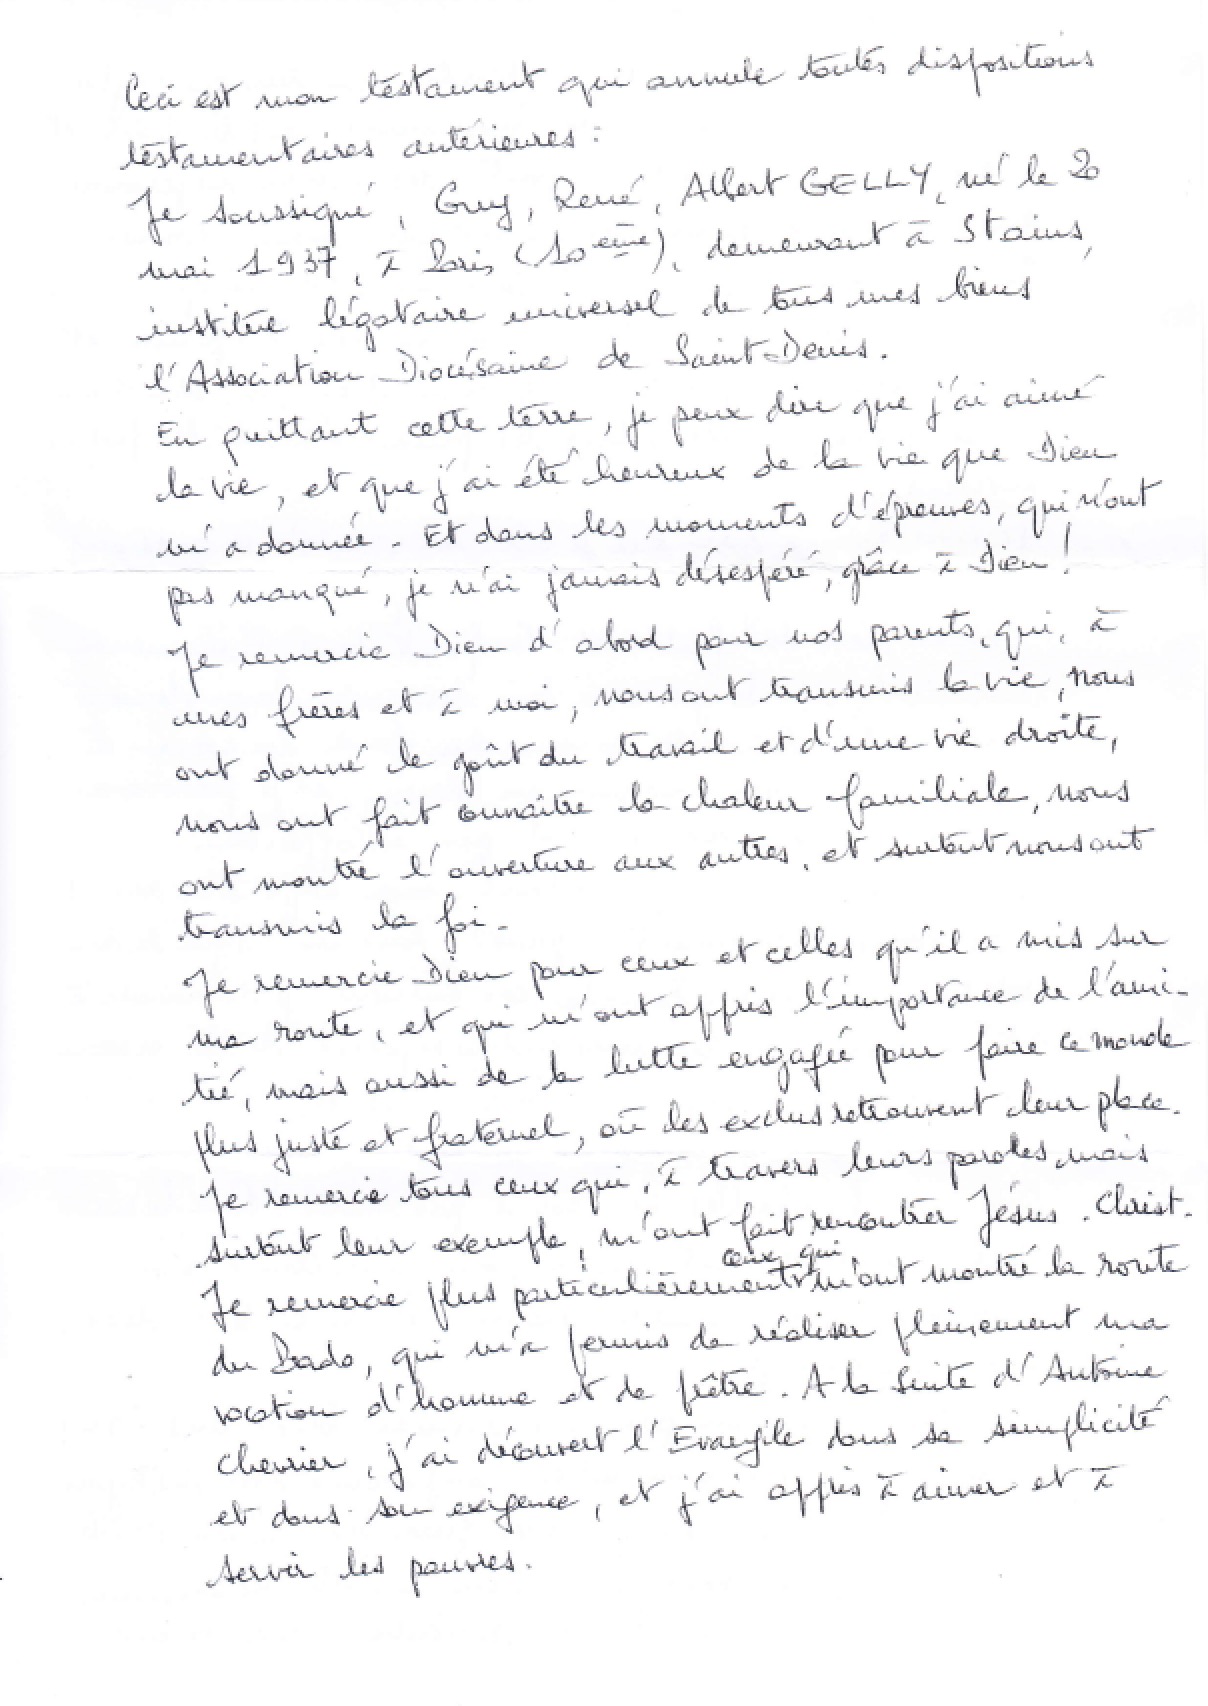 Ceci est mon testament qui annule toutes dispositions
testamentaires antérieures :
Je soussigné, Guy, René, Albert GELLY, né le 20
mai 1937, à Paris (10ème), demeurant à Stains,
institue légataire universel de tous mes biens
l'Association Diocésaine de Saint-Denis.
En quittant cette terre, je peux dire que j'ai aimé
la vie, et que j'ai été heureux de la vie que Dieu
m'a donnée. Et dans les moments d'épreuves, qui n'ont
pas manqué, je n'ai jamais désespéré, grâce à Dieu !
Je remercie Dieu d'abord pour nos parents, qui, à
mes frères et à moi, nous ont transmis la vie, nous
ont donné le goût du travail et d'une vie droite,
nous ont fait connaître la chaleur familiale, nous
ont montré l'ouverture aux autres, et surtout nous ont
transmis la foi.
Je remercie Dieu pour ceux et celles qu'il a mis sur
ma route, et qui m'ont appris l'importance de l'ami-
tié, mais aussi de la lutte engagée pour faire ce monde
plus juste et fraternel, où les exclus retrouvent leur place.
Je remercie tous ceux qui, à travers leurs paroles, mais
surtout leur exemple, m'ont fait rencontrer Jésus-Christ.
Je remercie plus particulièrement ceux qui m'ont montré la route
du Prado, qui m'a permis de réaliser pleinement ma
vocation d'homme et de prêtre. A la suite d'Antoine
Chevrier, j'ai découvert l'Evangile dans sa simplicité
et dans son exigence, et j'ai appris à aimer et à
servir les pauvres.